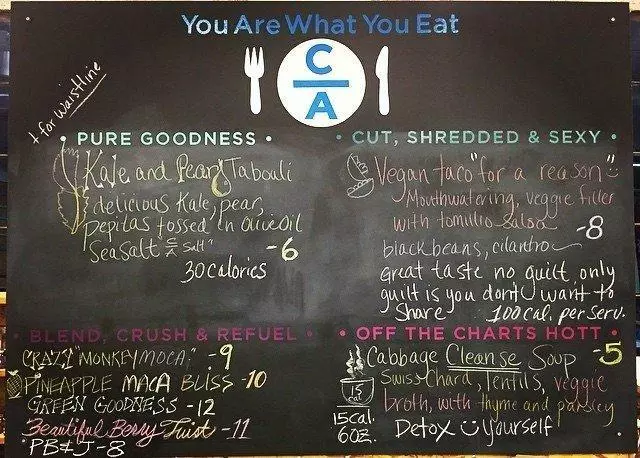 You Are What You Eat
C
A
+ for waistline
• PURE GOODNESS •
Kale and Pear Tabouli
delicious Kale, pear,
pepitas tossed in Olive Oil
Sea Salt C/A "Salt" -6
30 Calories
• CUT, SHREDDED & SEXY •
Vegan taco "for a reason"
Mouthwatering, veggie filler
with tomillo Salsa -8
black beans, cilantro
great taste no guilt, only
guilt is you don't want to
Share 100 Cal. per Serv.
• BLEND, CRUSH & REFUEL •
CRAZY "MONKEY MOCA" - 9
PINEAPPLE MACA BLISS - 10
GREEN GOODNESS - 12
Beautiful Berry Twist - 11
PB&J - 8
• OFF THE CHARTS HOTT •
Cabbage Cleanse Soup -5
Swiss Chard, lentils, veggie
broth, with thyme and parsley
Detox yourself
15 cal
15cal.
6oz.